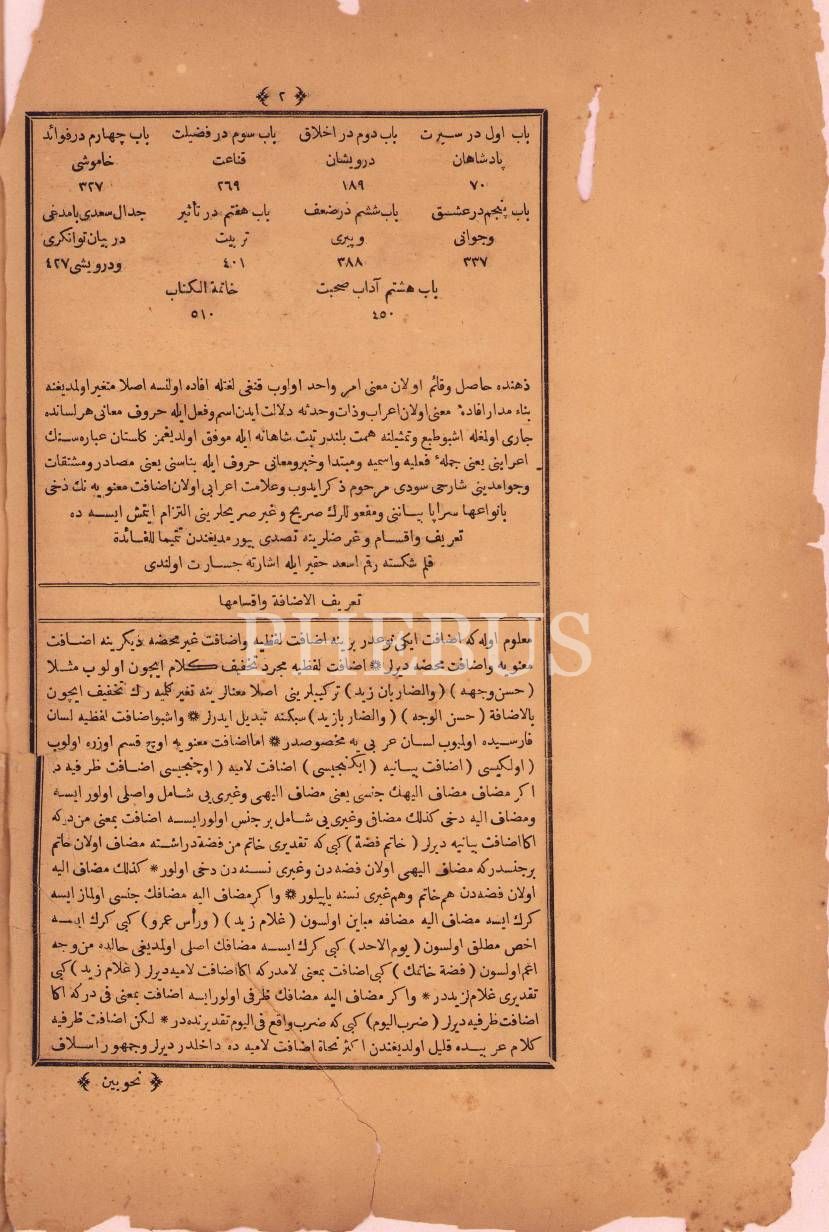 ﴿ ٢ ﴾
باب اول در سيرت باب دوم در اخلاق باب سوم در فضيلت باب چهارم در فوائد
پادشاهان درويشان قناعت خاموشى
٧٠ ١٨٩ ٢٦٩ ٣٢٧
باب پنجم در عشق باب ششم در ضعف باب هفتم در تأثير جدال سعدى با مدعى
وجوانى وپيرى تربيت در بيان توانكرى
٣٣٧ ٣٨٨ ٤٠١ ودرويشى ٤٢٧
باب هشتم آداب صحبت خاتمة الكتاب
٤٥٠ ٥١٠
ذهنده حاصل وقائم اولان معنى امر واحد اولوب قنغى لغتله افاده اولنسه اصلا متغير اولمديغنه
بناء مدار افادهٔ معنى اولان اعراب وذات وحدثه دلالت ايدن اسم وفعل ايله حروف معانى هر لسانده
جارى اولمغله اشبو طبع وتمثيلنه همت بلندرتبت شاهانه ايله موفق اولديغمز كلستان عباره سنك
اعرابنى يعنى جملهٔ فعليه واسميه ومبتدا وخبر ومعانى حروف ايله بناسنى يعنى مصادر ومشتقات
وجوامدينى شارحى سودى مرحوم ذكر ايدوب وعلامت اعرابى اولان اضافت معنويه نك دخى
بانواعها سراپا بياننى ومفعوللرك صريح وغير صريحلرينى التزام ايتمش ايسه ده
تعريف واقسام وغرضلرينه تصدى بيورمديغندن تتميما للفائدة
قلم شكسته رقم اسعد حقير ايله اشارته جسارت اولندى
تعريف الاضافة واقسامها
معلوم اوله كه اضافت ايكى نوعدر برينه اضافت لفظيه واضافت غير محضه ديكرينه اضافت
معنويه واضافت محضه ديرلر * اضافت لفظيه مجرد تخفيف كلام ايچون اولوب مثلا
(حسن وجهه) (والضاربان زيد) تركيبلرينى اصلا معنالرينه تغير كليه رك تخفيف ايچون
بالاضافة (حسن الوجه) (والضاربا زيد) سبكنه تبديل ايدرلر * واشبو اضافت لفظيه لسان
فارسيده اولميوب لسان عربى يه مخصوصدر * اما اضافت معنويه اوچ قسم اوزره اولوب
(اولكيسى) اضافت بيانيه (ايكنجيسى) اضافت لاميه (اوچنجيسى) اضافت ظرفيه در
اكر مضاف مضاف اليهك جنسى يعنى مضاف اليهى وغيرى يى شامل واصلى اولور ايسه
ومضاف اليه دخى كذلك مضاف وغيرى يى شامل بر جنس اولور ايسه اضافت بمعنى من دركه
اكا اضافت بيانيه ديرلر (خاتم فضة) كبى كه تقديرى خاتم من فضة در اشته مضاف اولان خاتم
بر جنسدركه مضاف اليهى اولان فضه دن وغيرى نسنه دن دخى اولور * كذلك مضاف اليه
اولان فضه دن هم خاتم وهم غيرى نسنه ياپيلور * واكر مضاف اليه مضافك جنسى اولماز ايسه
كرك ايسه مضاف اليه مضافه مباين اولسون (غلام زيد) (ورأس عمرو) كبى كرك ايسه
اخص مطلق اولسون (يوم الاحد) كبى كرك ايسه مضافك اصلى اولمديغى حالده من وجه
اعم اولسون (فضة خاتمك) كبى اضافت بمعنى لامدركه اكا اضافت لاميه ديرلر (غلام زيد) كبى
تقديرى غلام لزيددر * واكر مضاف اليه مضافك ظرفى اولور ايسه اضافت بمعنى فى دركه اكا
اضافت ظرفيه ديرلر (ضرب اليوم) كبى كه ضرب واقع فى اليوم تقديرنده در * لكن اضافت ظرفيه
كلام عربيده قليل اولديغندن اكثر نحاة اضافت لاميه ده داخلدر ديرلر وجمهور اسلاف
﴿ نحويين ﴾
PHEBUS